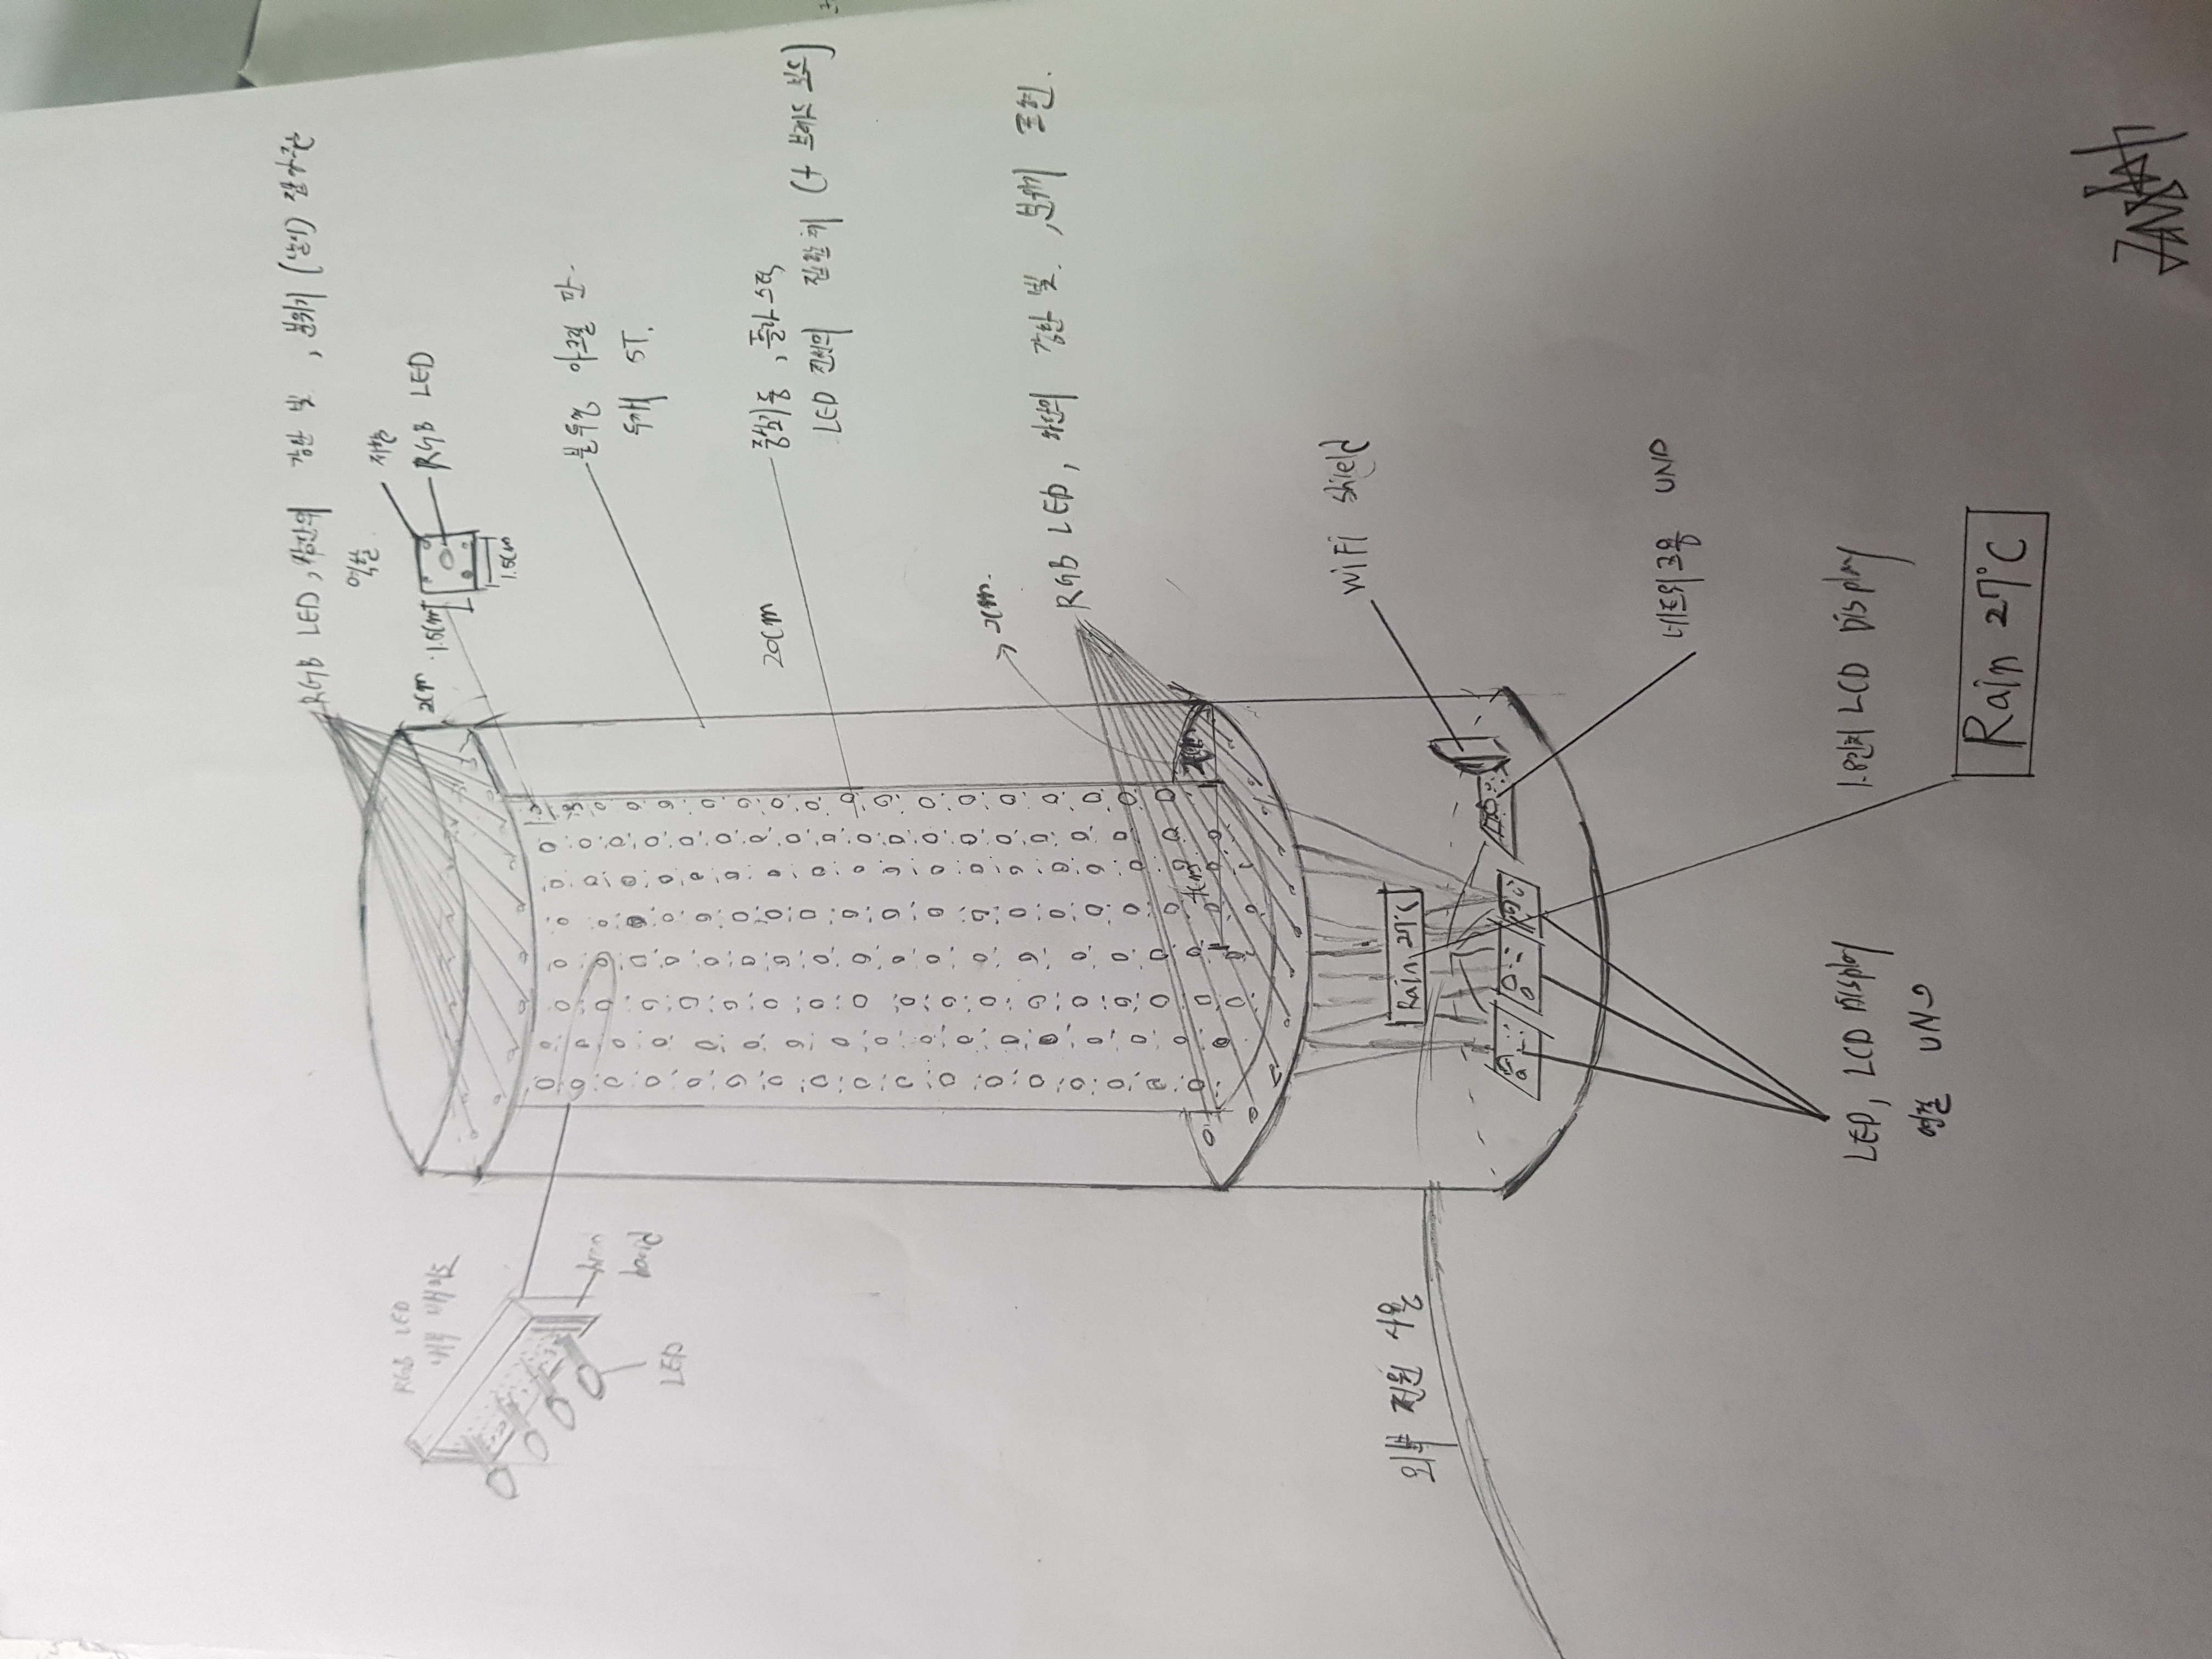 RGB LED, 상단의 강한 빛, 분위기 (날씨) 잡아주는
역할
저항
RGB LED
2cm
1.5cm
1.5cm
RGB LED
내부 배치도
LED
불투명 아크릴 판.
두께 5T.
20cm
중심기둥, 플라스틱
LED 전선의 집합체 (+ 브레드 보드)
2cm.
RGB LED, 하단의 강한 빛, 분위기 표현.
2cm
WiFi shield
외부 전원 사용
Rain 27°C
네트워크용 UNO
LED, LCD Display
연결 UNO
1.8인치 LCD Display
Rain 27°C